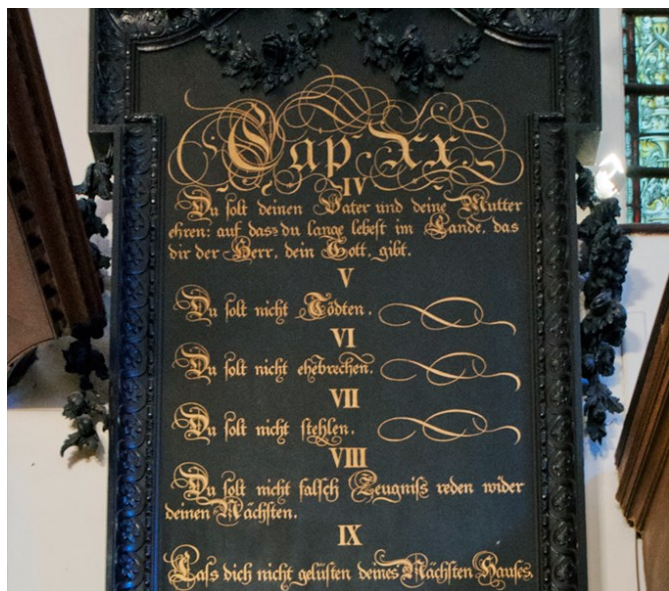 Cap. XX.
IV
Du solt deinen Vater und deine Mutter
ehren: auf dass du lange lebest im Lande, das
dir der Herr, dein Gott, gibt.
V
Du solt nicht Tödten.
VI
Du solt nicht ehebrechen.
VII
Du solt nicht stehlen.
VIII
Du solt nicht falsch Zeugniss reden wider
deinen Nächsten.
IX
Lass dich nicht gelüsten deines Nächsten Hauses.